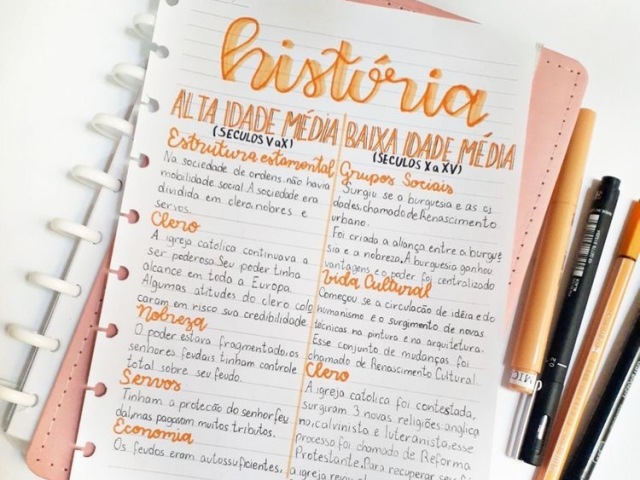 história
ALTA IDADE MÉDIA
(SECULOS V a X)
Estrutura estamental
Na sociedade de ordens, não havia
mobilidade social. A sociedade era
dividida em clero, nobres e
servos.
Clero
A igreja catolica continuava a
ser poderosa. Seu poder tinha
alcance em toda a Europa.
Algumas atitudes do clero colo
caram em risco sua credibilidade
Nobreza
O poder estava fragmentado, os
senhores feudais tinham controle
total sobre seu feudo.
Servos
Tinham a protecção do senhor feu
dal, mas pagavam muitos tributos.
Economia
Os feudos eram autossuficientes,
BAIXA IDADE MÉDIA
(SECULOS X a XV)
Grupos Sociais
Surgiu se a burguesia e as ci
dades, chamado de Renascimento
urbano.
Foi criada a aliança entre a burgue
sia e a nobreza. A burguesia ganhou
vantagens e o poder foi centralizado
Vida Cultural
Começou se a circulação de idéia e do
humanismo e o surgimento de novas
técnicas na pintura e na arquitetura.
Esse conjunto de mudanças foi
chamado de Renascimento Cultural.
Clero
A igreja catolica foi contestada,
surgiram 3 novas religiões: anglica
no, calvinista e luteranista, esse
processo foi chamado de Reforma
Protestante. Para recuperar seu
a igreja